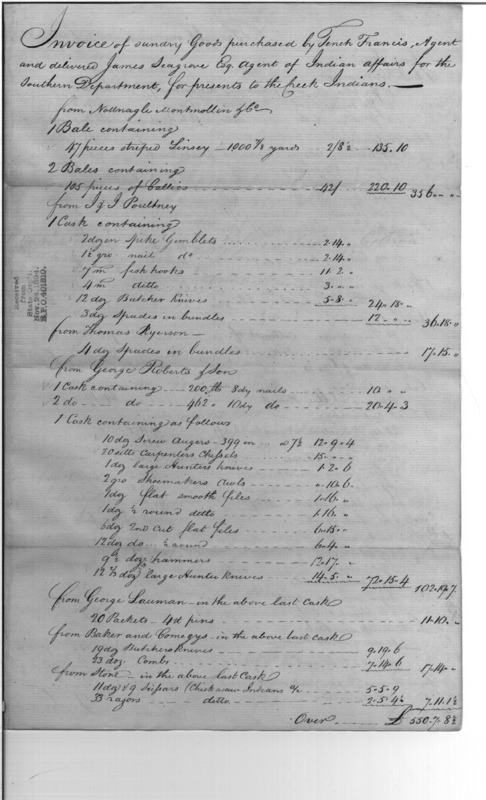 Invoice of sundry Goods purchased by Tench Francis, Agent
and delivered James Seagrove Esq. Agent of Indian affairs for the
Southern Department, for presents to the Creek Indians.
from Nottnagle Montmollin & Co
1 Bale containing
47 pieces striped Linsey - 1000 1/2 yards 2/8½ 135.10
2 Bales containing
105 pieces of Callico 42/ 220.10 356. " "
from I & I Poultney
1 Cask containing
2 dozen Spike Gimblets 2.14. "
1½ gro nail do 2.14. "
7 m fish hooks 11.2. "
4 m ditto 3. " "
12 doz Butcher Knives 5.8. " 24.18. "
3 doz Spades in bundles 12. " " 36.18. "
from Thomas Ryerson
4 doz Spades in bundles 17.15. "
from George Roberts & Son
1 Cask containing 200 lb 8dy nails 10. " "
2 do do 462 " 10dy do 20.4.3
1 Cask containing as follows
10 doz Screw Augers - 399 in @ 7½ 12.9.4
20 setts Carpenters Chissels 15. " "
1 doz large Hunters Knives 1.2.6
2 gro Shoemakers Awls ".10.6
doz flat smooth files 1.16. "
1 doz ½ round ditto 1.16. "
6 doz 2nd Cut flat files 6.15. "
12 doz do ½ round 6.4. "
doz hammers 12.17. "
12 doz large Hunter Knives 14.5. " 72.15.4 102.19.7
from George Lauman - in the above last Cask
20 Packets 4d pins 11.10. "
from Baker and Comegys - in the above last cask
19 doz Butchers Knives 9.19.6
23 doz. Combs 7.14.6 17.14. "
from Stone - in the above last Cask
11 doz & 9 Scissars (Chickasaw Indians 5.5.9
33 razors ditto 2.5.4½ 7.11.1½
Over £ 550.7.8½
Received
from
State Dep't,
Nov. 24, 1894.
R.P.O. 401810.